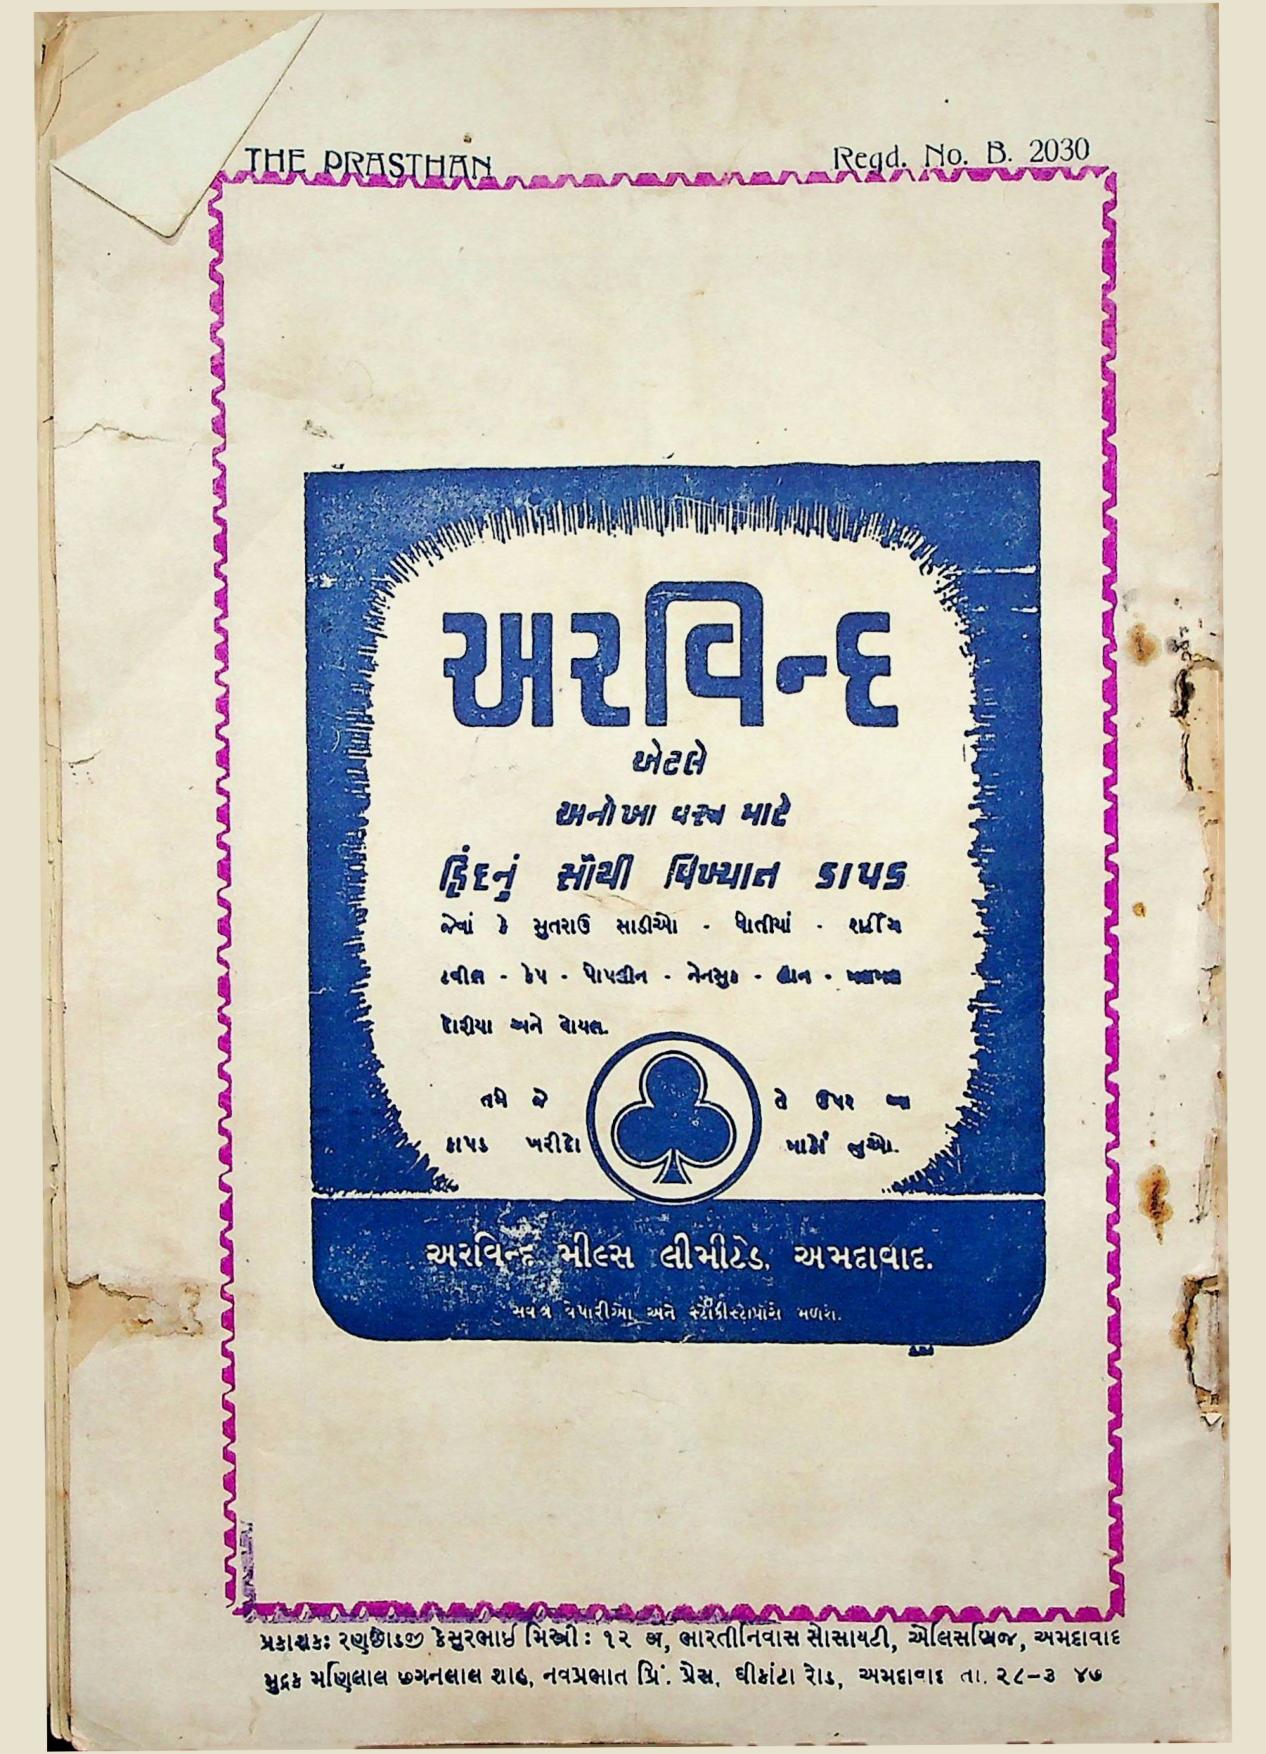 THE PRASTHAN
Regd. No. B. 2030
અરવિન્દ
એટલે
અનોખા વસ્ત્ર માટે
હિંદનું સૌથી વિખ્યાત કાપડ
જેવાં કે સુતરાઉ સાડીઓ - ધોતીયાં - શર્ટીંગ
ટવીલ - ક્રેપ - પોપલીન - નેનસુક - લોન - મલમલ
દોરીયા અને વોયલ.
તમે જે
કાપડ ખરીદો
તે ઉપર આ
માર્કો જુઓ.
અરવિન્દ મીલ્સ લીમીટેડ, અમદાવાદ.
સર્વત્ર વેપારીઓ અને સ્ટોકીસ્ટો પાસે મળશે.
પ્રકાશક: રણછોડજી કેસુરભાઈ મિસ્ત્રી : ૧૨ અ, ભારતીનિવાસ સોસાયટી, એલિસબ્રિજ, અમદાવાદ
મુદ્રક મણિલાલ છગનલાલ શાહ, નવપ્રભાત પ્રિં. પ્રેસ, ઘીકાંટા રોડ, અમદાવાદ તા. ૨૮-૩ ૪૭